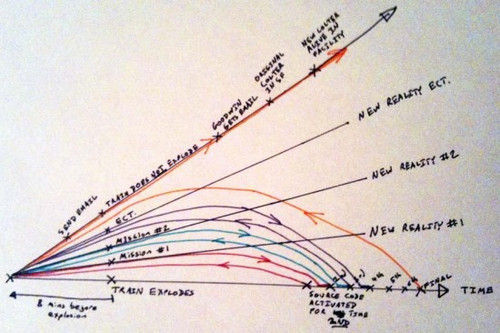 NEW COLTER
ALIVE IN
FACILITY
ORIGINAL
COLTER
IN SC
GOODWIN
GETS EMAIL
TRAIN DOES NOT EXPLODE
SEND EMAIL
NEW REALITY ECT.
NEW REALITY #2
NEW REALITY #1
ECT.
MISSION #2
MISSION #1
8 mins before
explosion
TRAIN EXPLODES
SOURCE CODE
ACTIVATED
FOR TIME
2ND
3RD
4th
5th
6th
FINAL
TIME